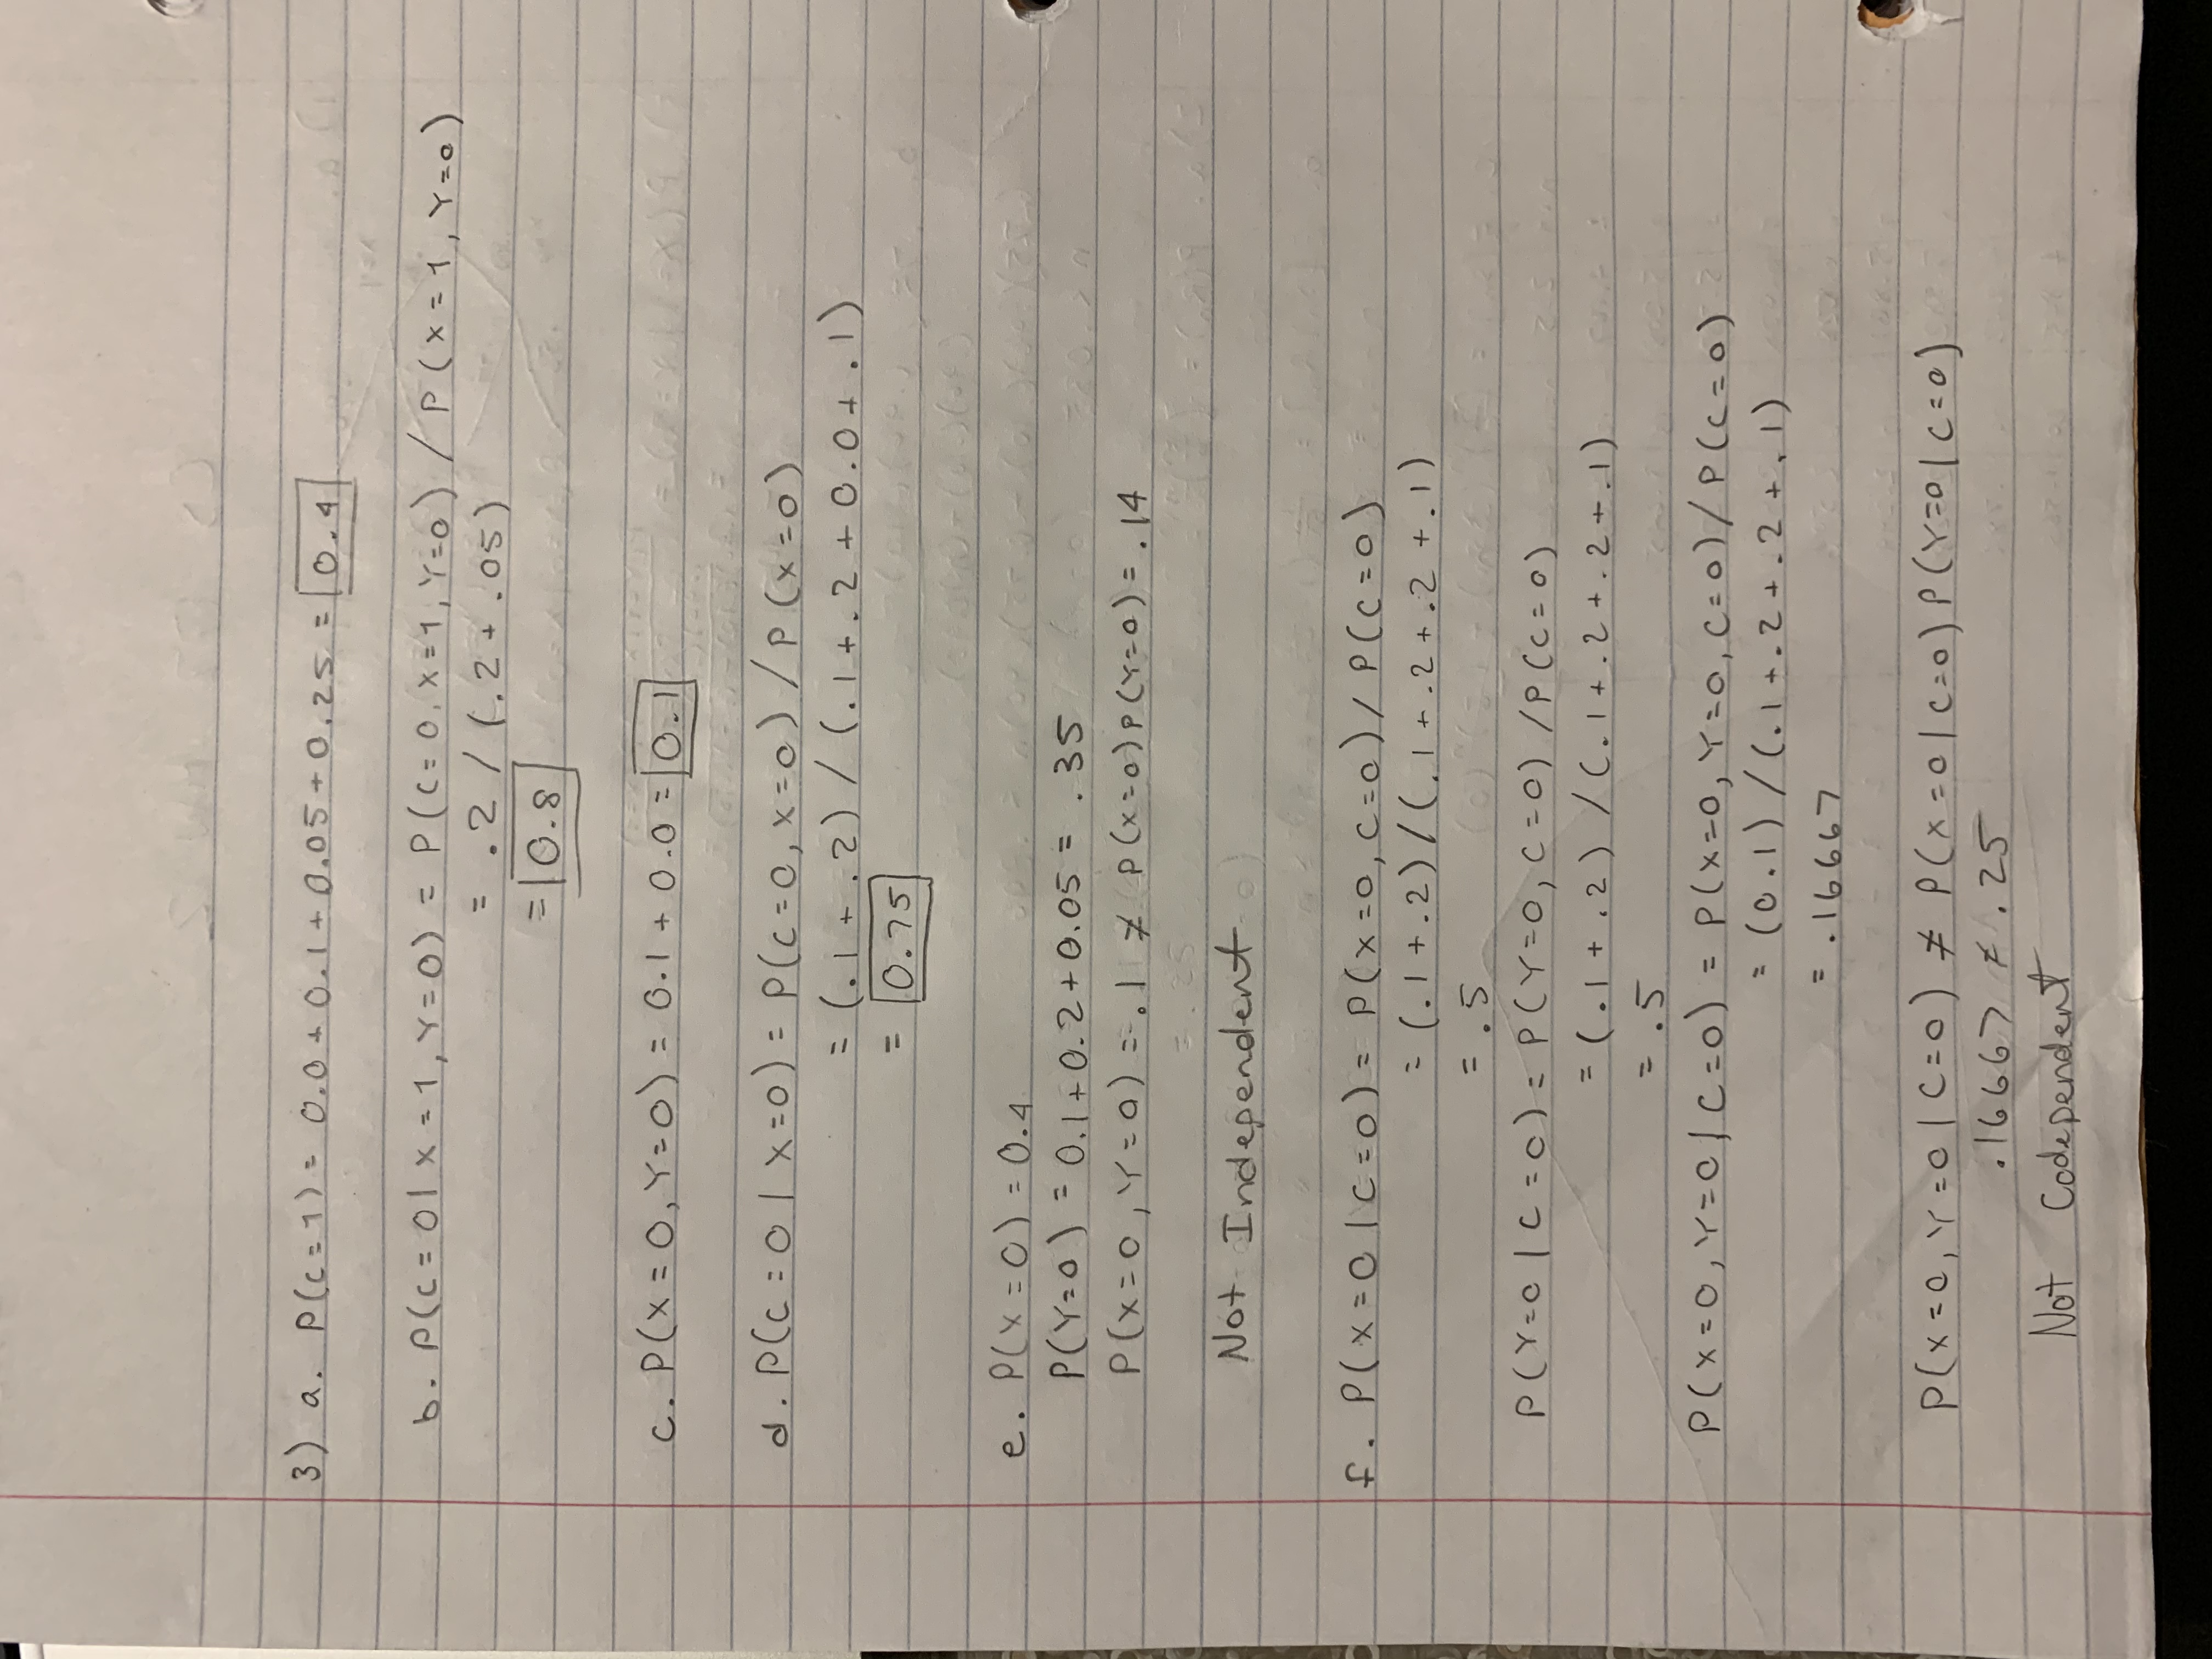 3) a. P(C=1) = 0.0 + 0.1 + 0.05 + 0.25 = 0.4
b. P(C=0 | X=1, Y=0) = P(C=0, X=1, Y=0) / P(X=1, Y=0)
= .2 / (.2 + .05)
= 0.8
c. P(X=0, Y=0) = 0.1 + 0.0 = 0.1
d. P(C=0 | X=0) = P(C=0, X=0) / P(X=0)
= (.1 + .2) / (.1 + .2 + 0.0 + .1)
= 0.75
e. P(X=0) = 0.4
P(Y=0) = 0.1 + 0.2 + 0.05 = .35
P(X=0, Y=0) = .1 ≠ P(X=0)P(Y=0) = .14
Not Independent
f. P(X=0 | C=0) = P(X=0, C=0) / P(C=0)
= (.1 + .2) / (.1 + .2 + .2 + .1)
= .5
P(Y=0 | C=0) = P(Y=0, C=0) / P(C=0)
= (.1 + .2) / (.1 + .2 + .2 + .1)
= .5
P(X=0, Y=0 | C=0) = P(X=0, Y=0, C=0) / P(C=0)
= (0.1) / (.1 + .2 + .2 + .1)
= .16667
P(X=0, Y=0 | C=0) ≠ P(X=0 | C=0) P(Y=0 | C=0)
.16667 ≠ .25
Not Codependent